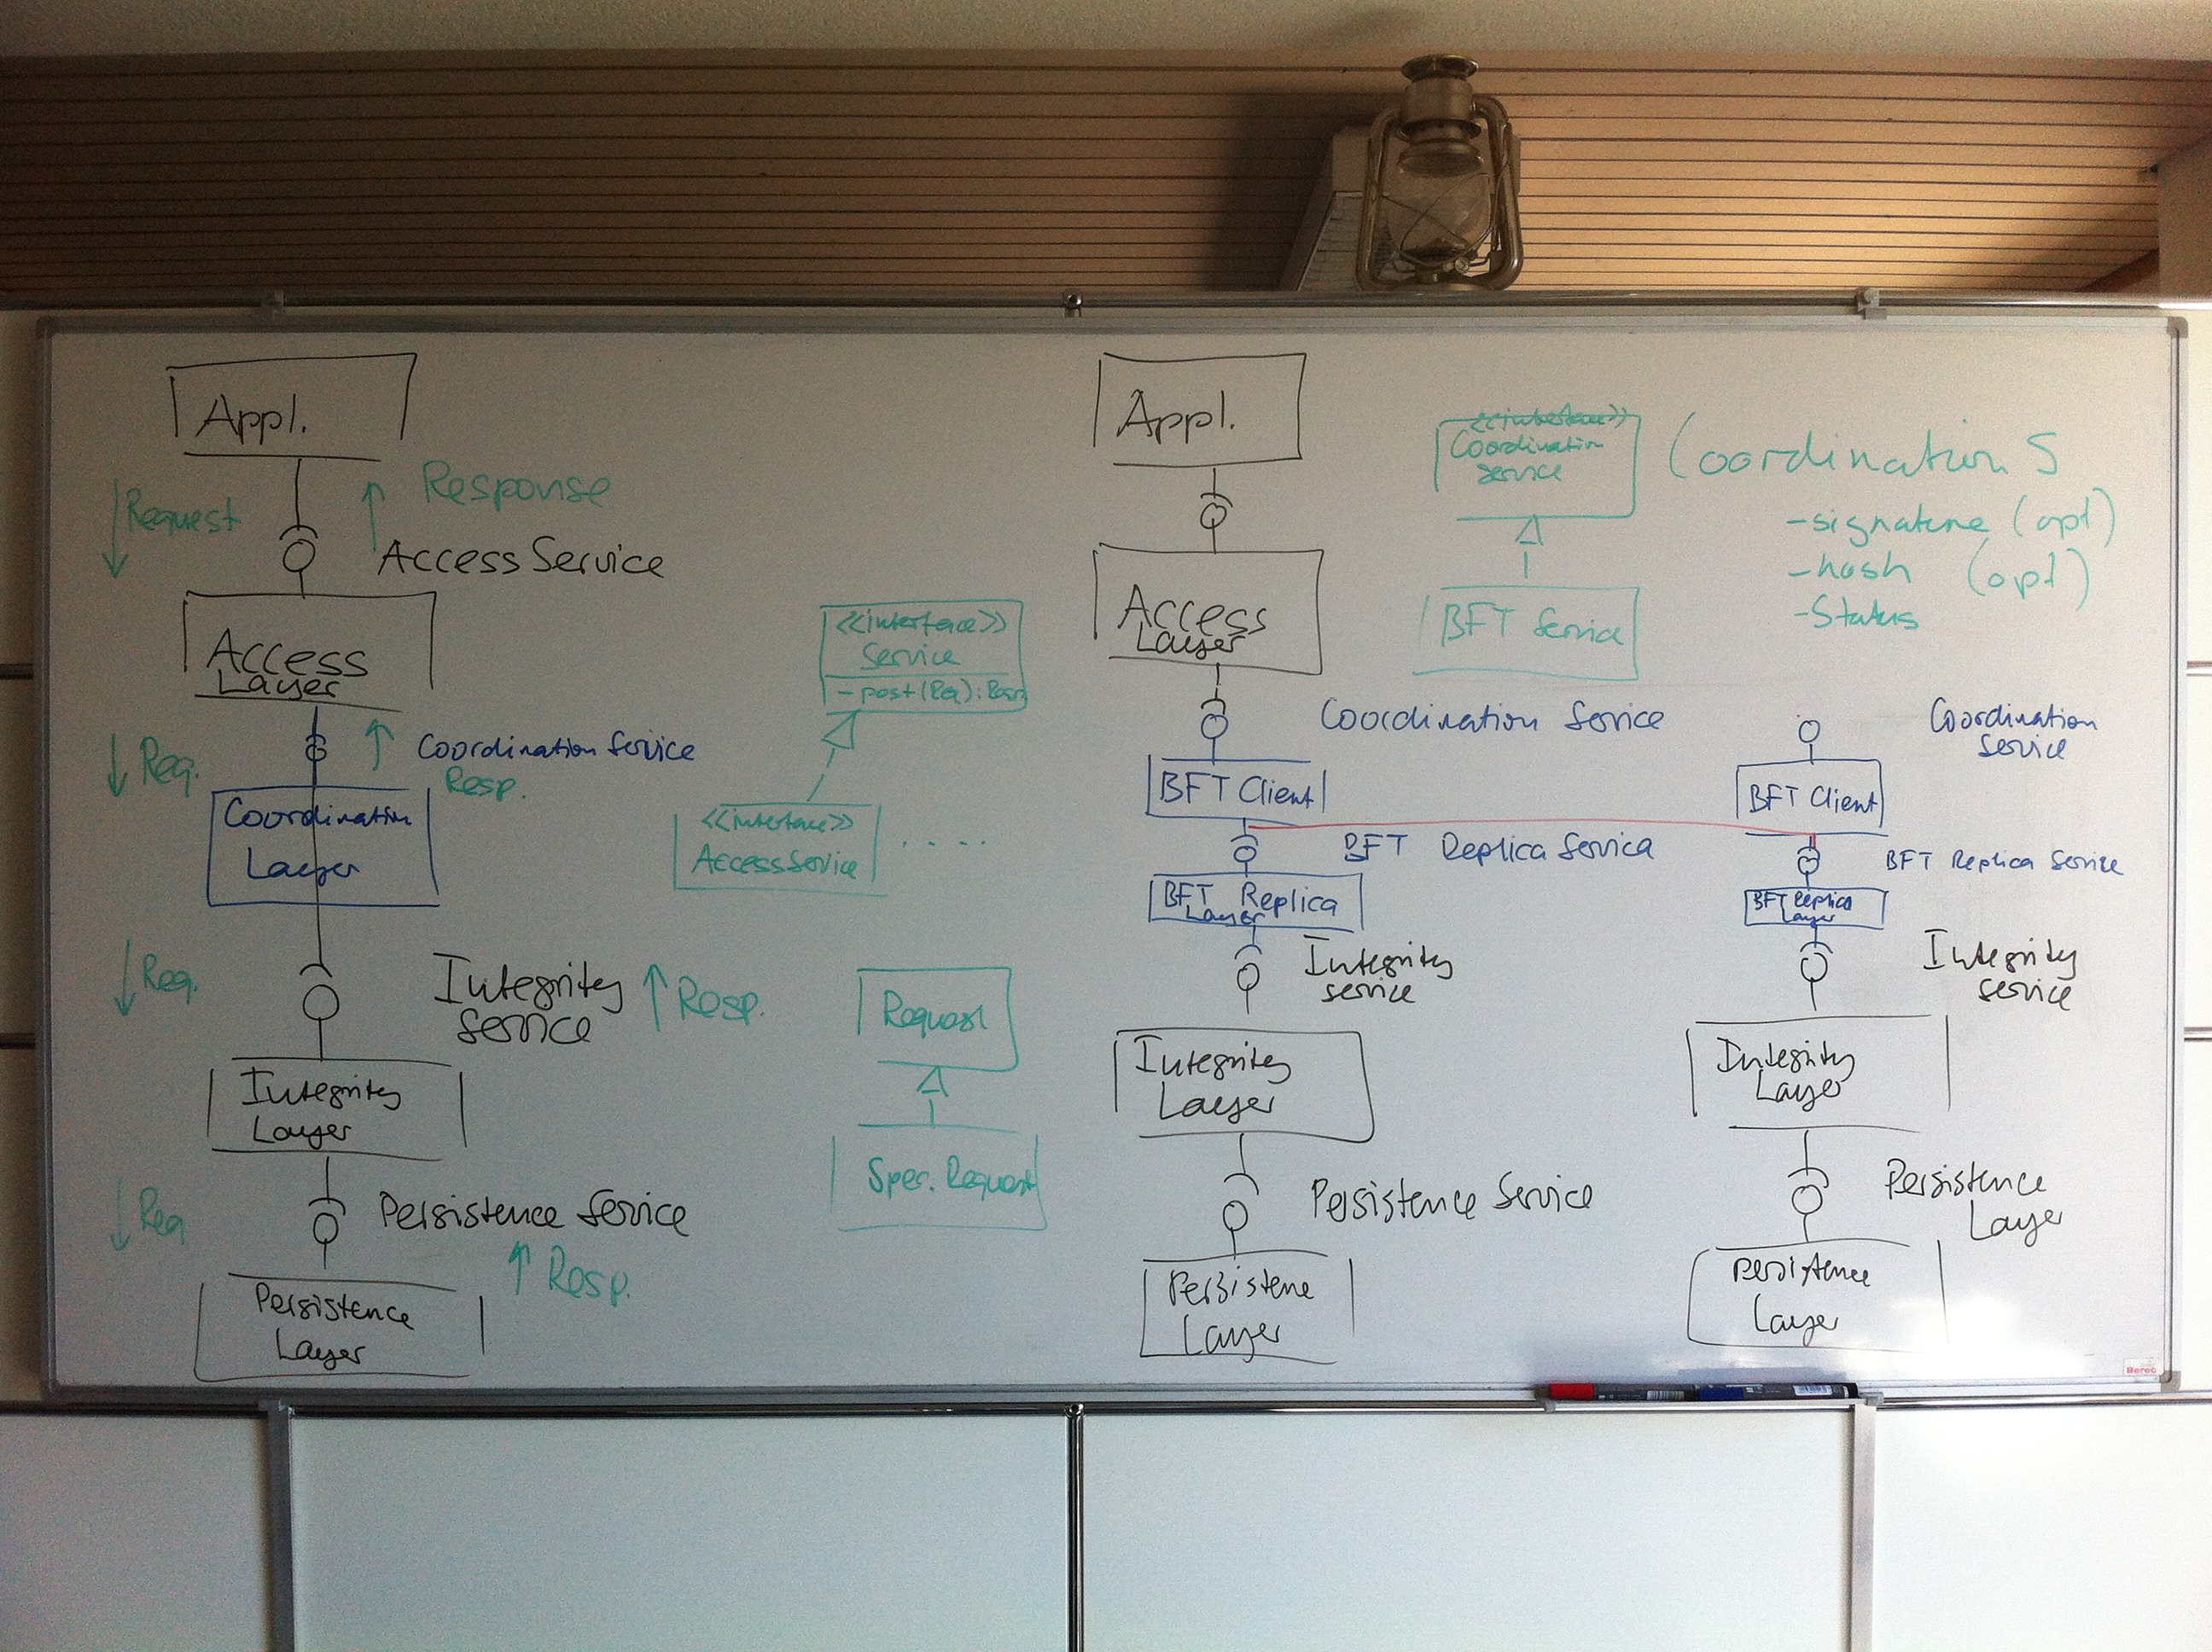 Appl.
Request
Response
Access Service
Access
Layer
Req.
Coordination Service
Resp.
Coordination
Layer
Req.
Integrity
Service
Resp.
Integrity
Layer
Req
Persistence Service
Resp.
Persistence
Layer
<<interface>>
Service
- post(Req): Resp
<<interface>>
AccessService
. . . .
Request
Spec. Request
Appl.
Access
Layer
Coordination Service
BFT Client
BFT Replica Service
BFT Replica
Layer
Integrity
Service
Integrity
Layer
Persistence Service
Persistene
Layer
<<interface>>
Coordination
Service
BFT Service
Coordination S
- signature (opt)
- hash (opt)
- Status
Coordination
Service
BFT Client
BFT Replica Service
BFT Replica
Layer
Integrity
Service
Integrity
Layer
Persistence
Layer
Persistence
Layer
Berec